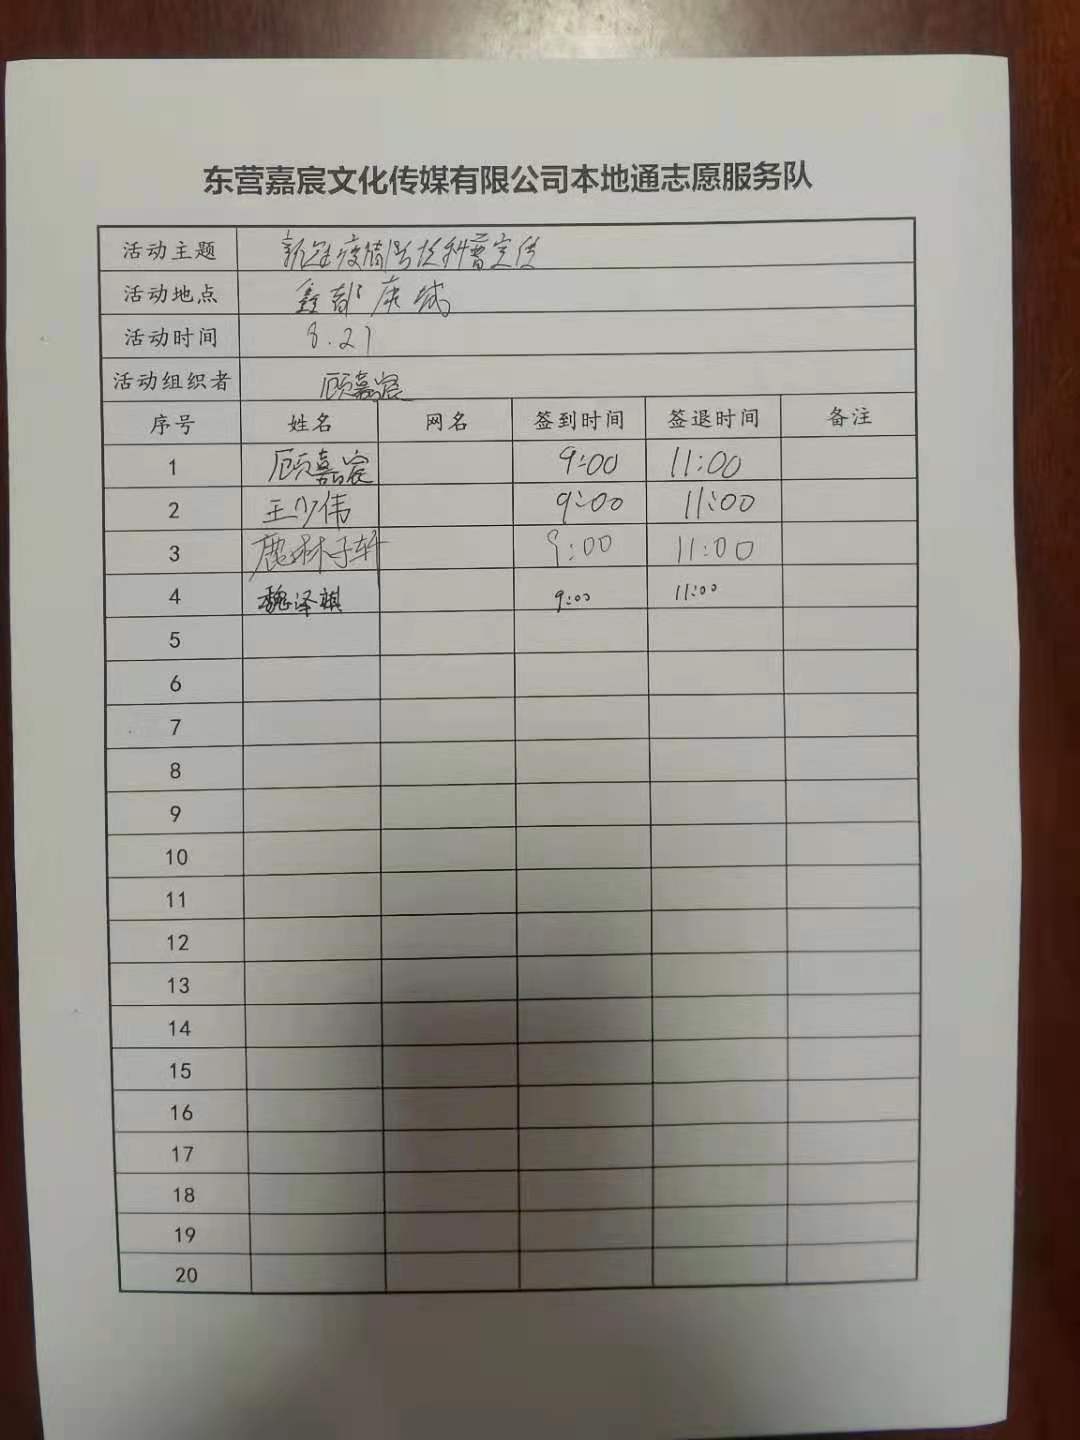 东营嘉宸文化传媒有限公司本地通志愿服务队
活动主题 新冠疫情防控科普宣传
活动地点 鑫都康城
活动时间 8.21
活动组织者 顾嘉宸
序号 姓名 网名 签到时间 签退时间 备注
1 顾嘉宸 9:00 11:00
2 王少伟 9:00 11:00
3 鹿林子轩 9:00 11:00
4 魏泽祺 9:00 11:00
5
6
7
8
9
10
11
12
13
14
15
16
17
18
19
20